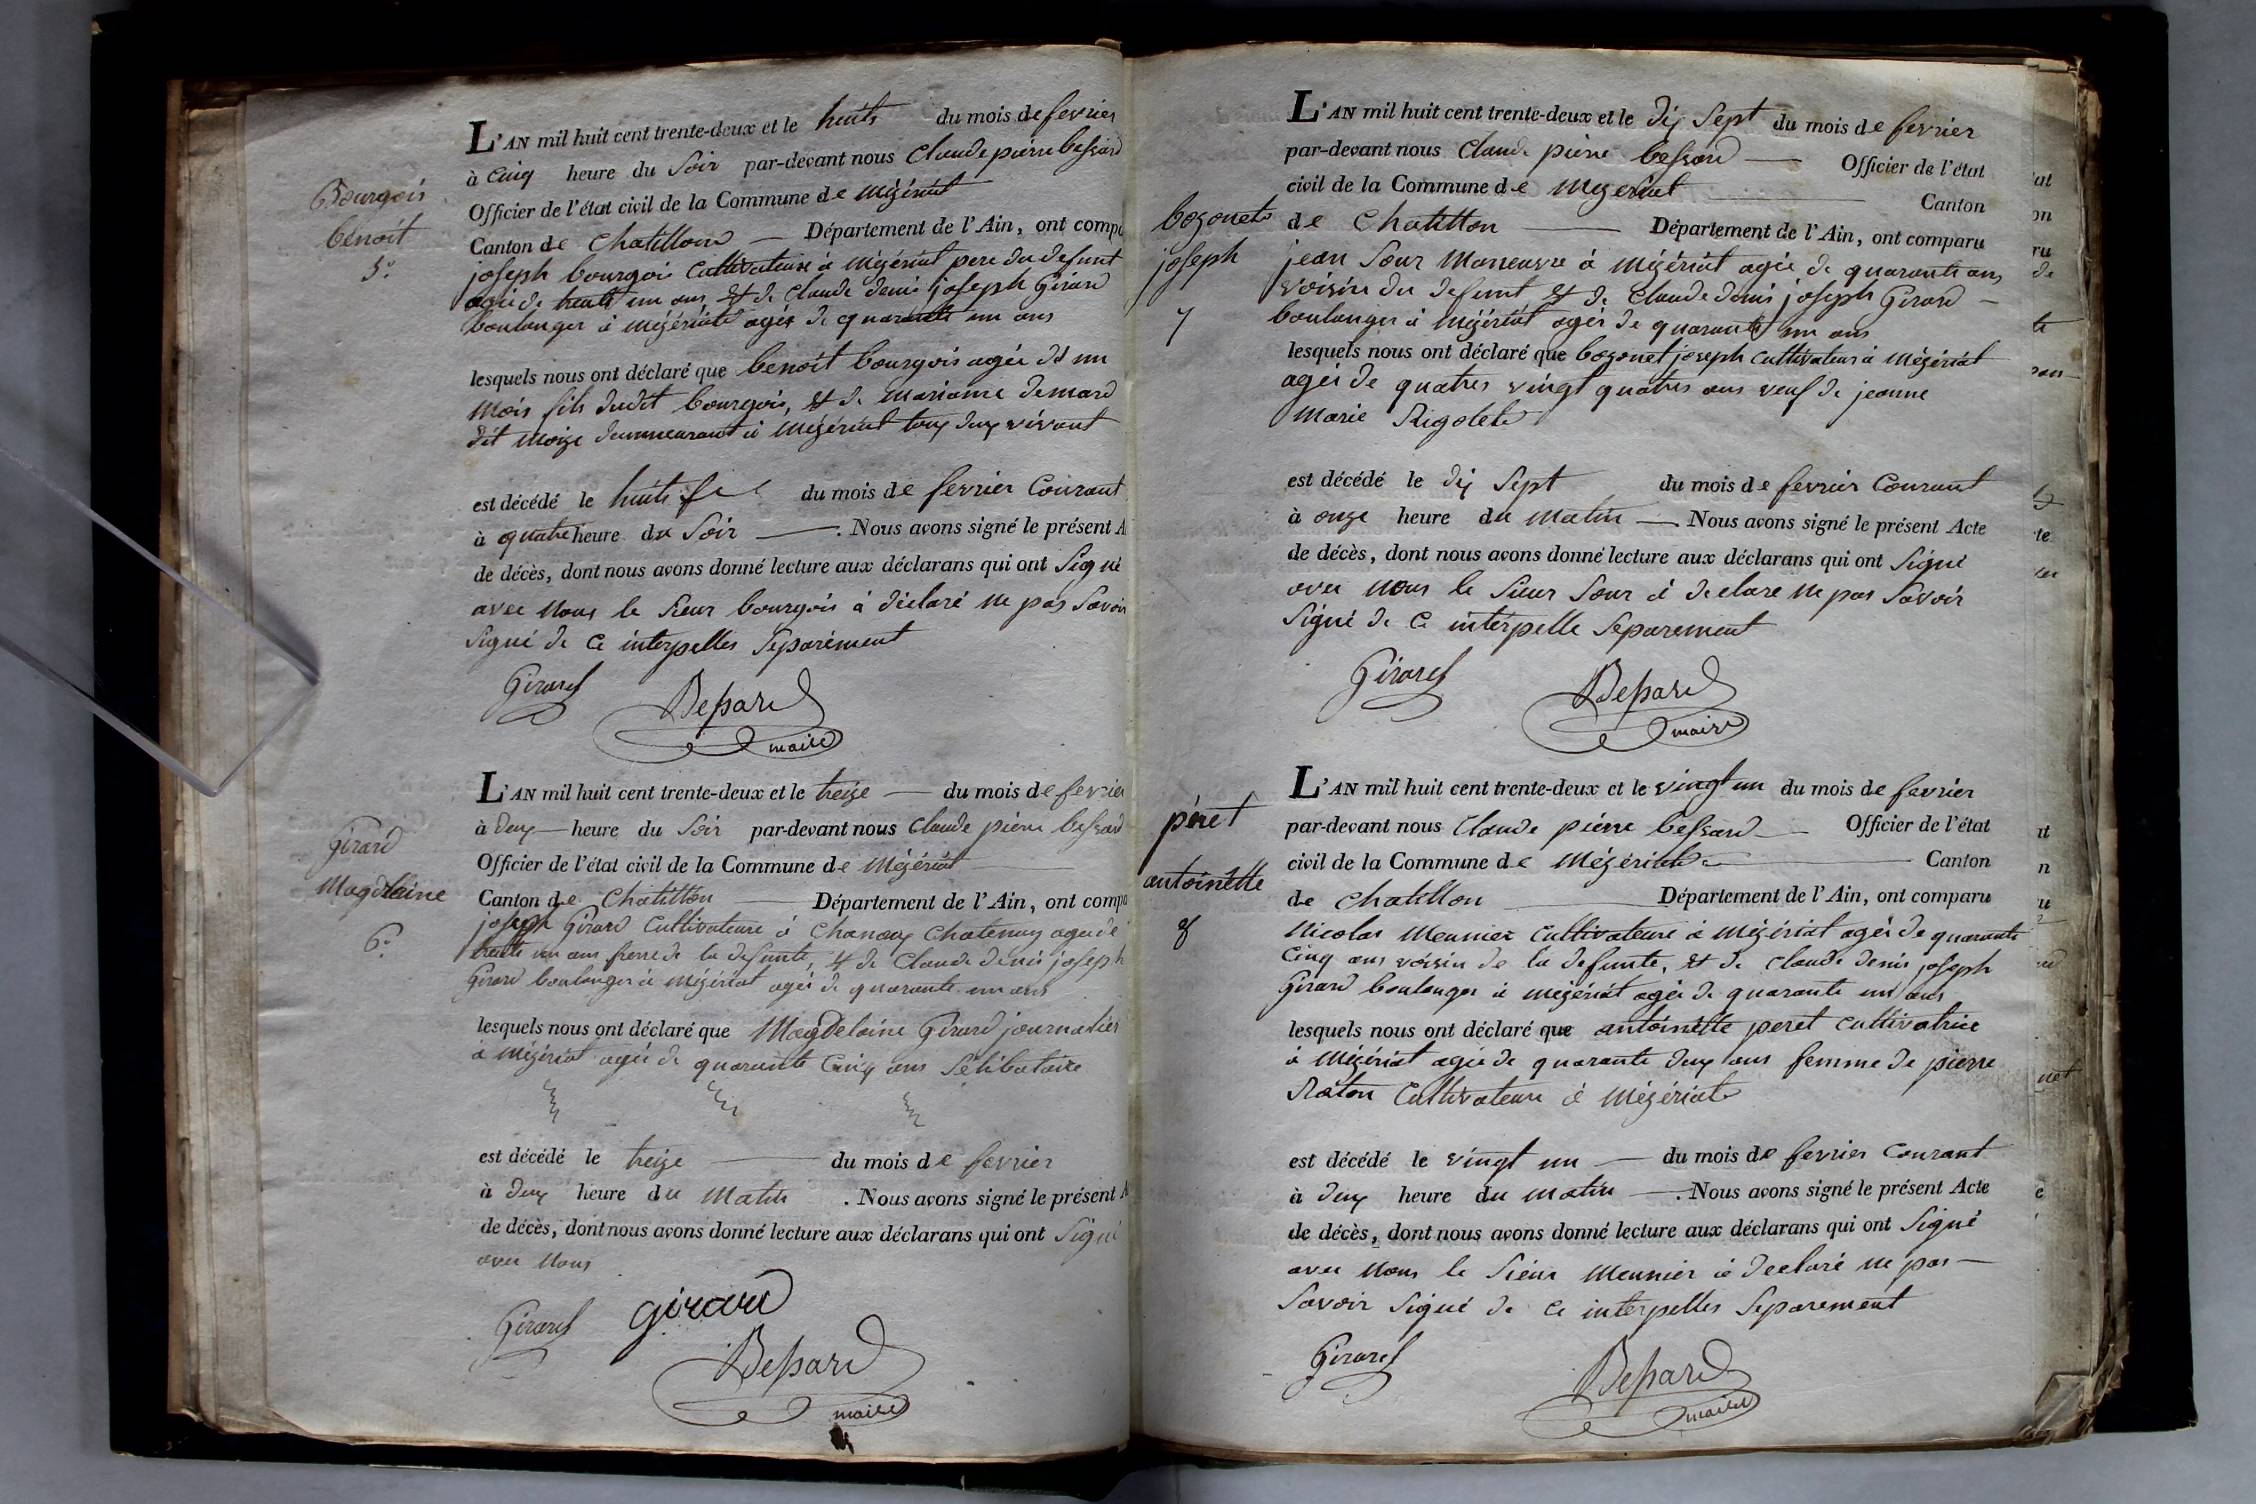 Bourgois
benoit
5.°
L'AN mil huit cent trente-deux et le huits du mois de fevrier
à cinq heure du Soir par-devant nous Claude pierre bessard
Officier de l'état civil de la Commune de mézériat
Canton de Chatillon — Département de l'Ain, ont compa
joseph bourgois Cultivateure à mézériat pere du defunt
agée de trente un ans, et de Claude denis joseph Girard
boulanger à mézériat agés de quarante un ans
lesquels nous ont déclaré que benoit bourgois agée d'
un mois fils dudit bourgois, et de mariane demard
dit moize demmeurant à mézériat touy deuy vivant
est décédé le huits du mois de fevrier Courant
à quatre heure du Soir —. Nous avons signé le présent A
de décès, dont nous avons donné lecture aux déclarans qui ont Signé
avec nous le Sieur bourgois à déclaré ne pas Savoir
Signé de ce interpelles Separément
Girard
Bessard
maire
Girard
Magdelaine
6.°
L'AN mil huit cent trente-deux et le treize — du mois de fevrier
à deuy — heure du Soir par-devant nous Claude pierre bessard
Officier de l'état civil de la Commune de mézériat
Canton de Chatillon — Département de l'Ain, ont compa
joseph Girard Cultivateure à Chanouy Chatenay agée de
trente un ans frere de la defunte, et de Claude denis joseph
Girard boulanger à mézériat agés de quarante un ans
lesquels nous ont déclaré que Magdelaine Girard journalier
à mézériat agée de quarante Cinq ans Sélibataire
est décédé le treize — du mois de fevrier
à deuy heure du Matin . Nous avons signé le présent A
de décès, dont nous avons donné lecture aux déclarans qui ont Signé
avec nous
Girard
girard
Bessard
maire
bozonet
joseph
7
L'AN mil huit cent trente-deux et le diy Sept du mois de fevrier
par-devant nous Claude pierre bessard — Officier de l'état
civil de la Commune de mezeriat — Canton
de Chatillon — Département de l'Ain, ont comparu
jean Sour Maneuvre à mézériat agée de quarante ans
voisin du defunt et de Claude denis joseph Girard —
boulanger à mézériat agés de quarante un ans
lesquels nous ont déclaré que bozonet joseph cultivateur à mézériat
agés de quatres vingt quatres ans veuf de jeanne
Marie Rigolet
est décédé le diy Sept du mois de fevrier Courant
à onze heure du matin —. Nous avons signé le présent Acte
de décès, dont nous avons donné lecture aux déclarans qui ont Signé
avec nous le Sieur Sour à declare ne pas Savoir
Signé de ce interpelle Separement
Girard
Bessard
maire
péret
antoinette
8
L'AN mil huit cent trente-deux et le vingt un du mois de fevrier
par-devant nous Claude pierre bessard — Officier de l'état
civil de la Commune de Mézériat — Canton
de Chatillon — Département de l'Ain, ont comparu
Nicolas Meunier Cultivateure à mézériat agés de quarante
Cinq ans voisin de la defunte, et de Claude denis joseph
Girard boulanger à mézériat agée de quarante un ans
lesquels nous ont déclaré que antoinette peret cultivatrice
à mézériat agée de quarante deuy ans femme de pierre
Raton Cultivateure à Mézériat
est décédé le vingt un — du mois de fevrier Courant
à deuy heure du matin —. Nous avons signé le présent Acte
de décès, dont nous avons donné lecture aux déclarans qui ont Signé
avec nous le Sieur Meunier à declaré ne pas —
Savoir Signé de ce interpelles Separement
Girard
Bessard
maire